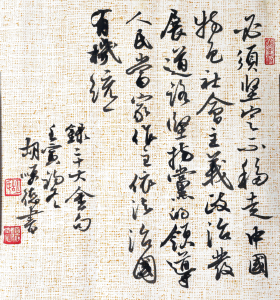 必須坚定不移走中國
特色社會主義政治發
展道路堅持黨的領導
人民當家作主依法治國
有機統一
錄二十大金句
壬寅
胡
書